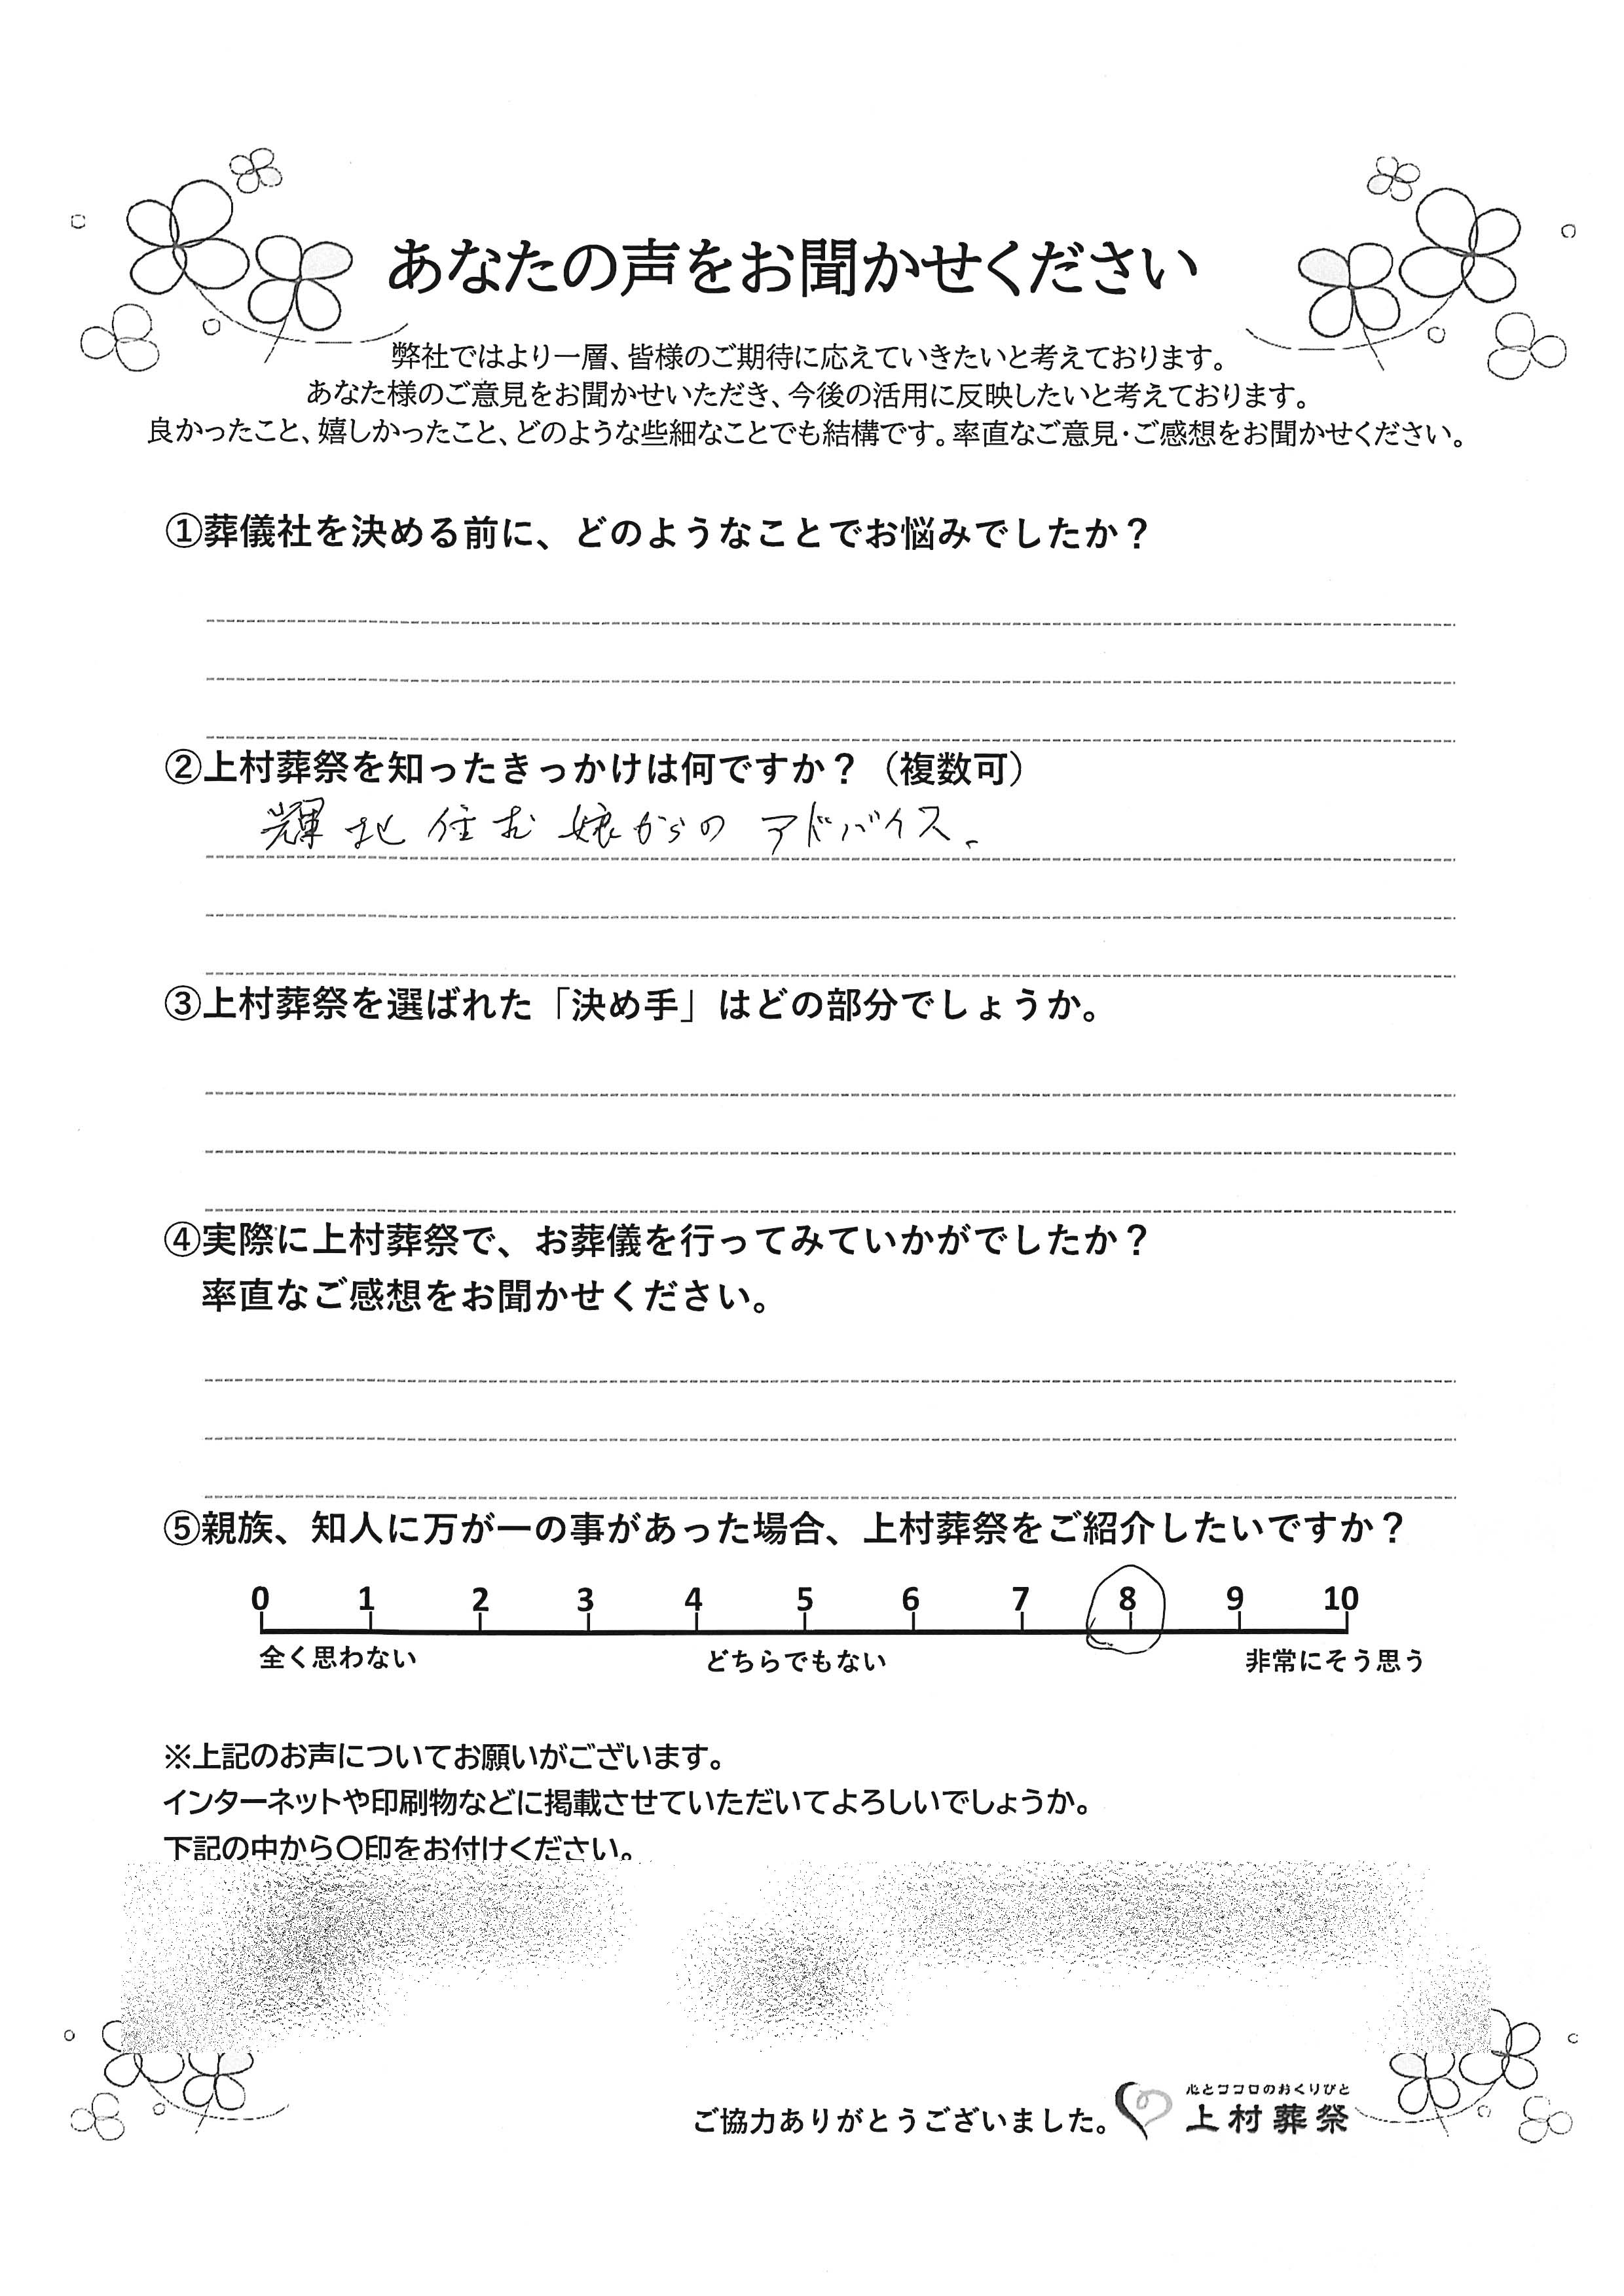 あなたの声をお聞かせください
弊社ではより一層、皆様のご期待に応えていきたいと考えております。
あなた様のご意見をお聞かせいただき、今後の活用に反映したいと考えております。
良かったこと、嬉しかったこと、どのような些細なことでも結構です。率直なご意見・ご感想をお聞かせください。
①葬儀社を決める前に、どのようなことでお悩みでしたか？
②上村葬祭を知ったきっかけは何ですか？（複数可）
住む娘からのアドバイス、
③上村葬祭を選ばれた「決め手」はどの部分でしょうか。
④実際に上村葬祭で、お葬儀を行ってみていかがでしたか？
率直なご感想をお聞かせください。
⑤親族、知人に万が一の事があった場合、上村葬祭をご紹介したいですか？
0 1 2 3 4 5 6 7 8 9 10
全く思わない どちらでもない 非常にそう思う
※上記のお声についてお願いがございます。
インターネットや印刷物などに掲載させていただいてよろしいでしょうか。
下記の中から〇印をお付けください。
心とココロのおくりびと
ご協力ありがとうございました。 上村葬祭